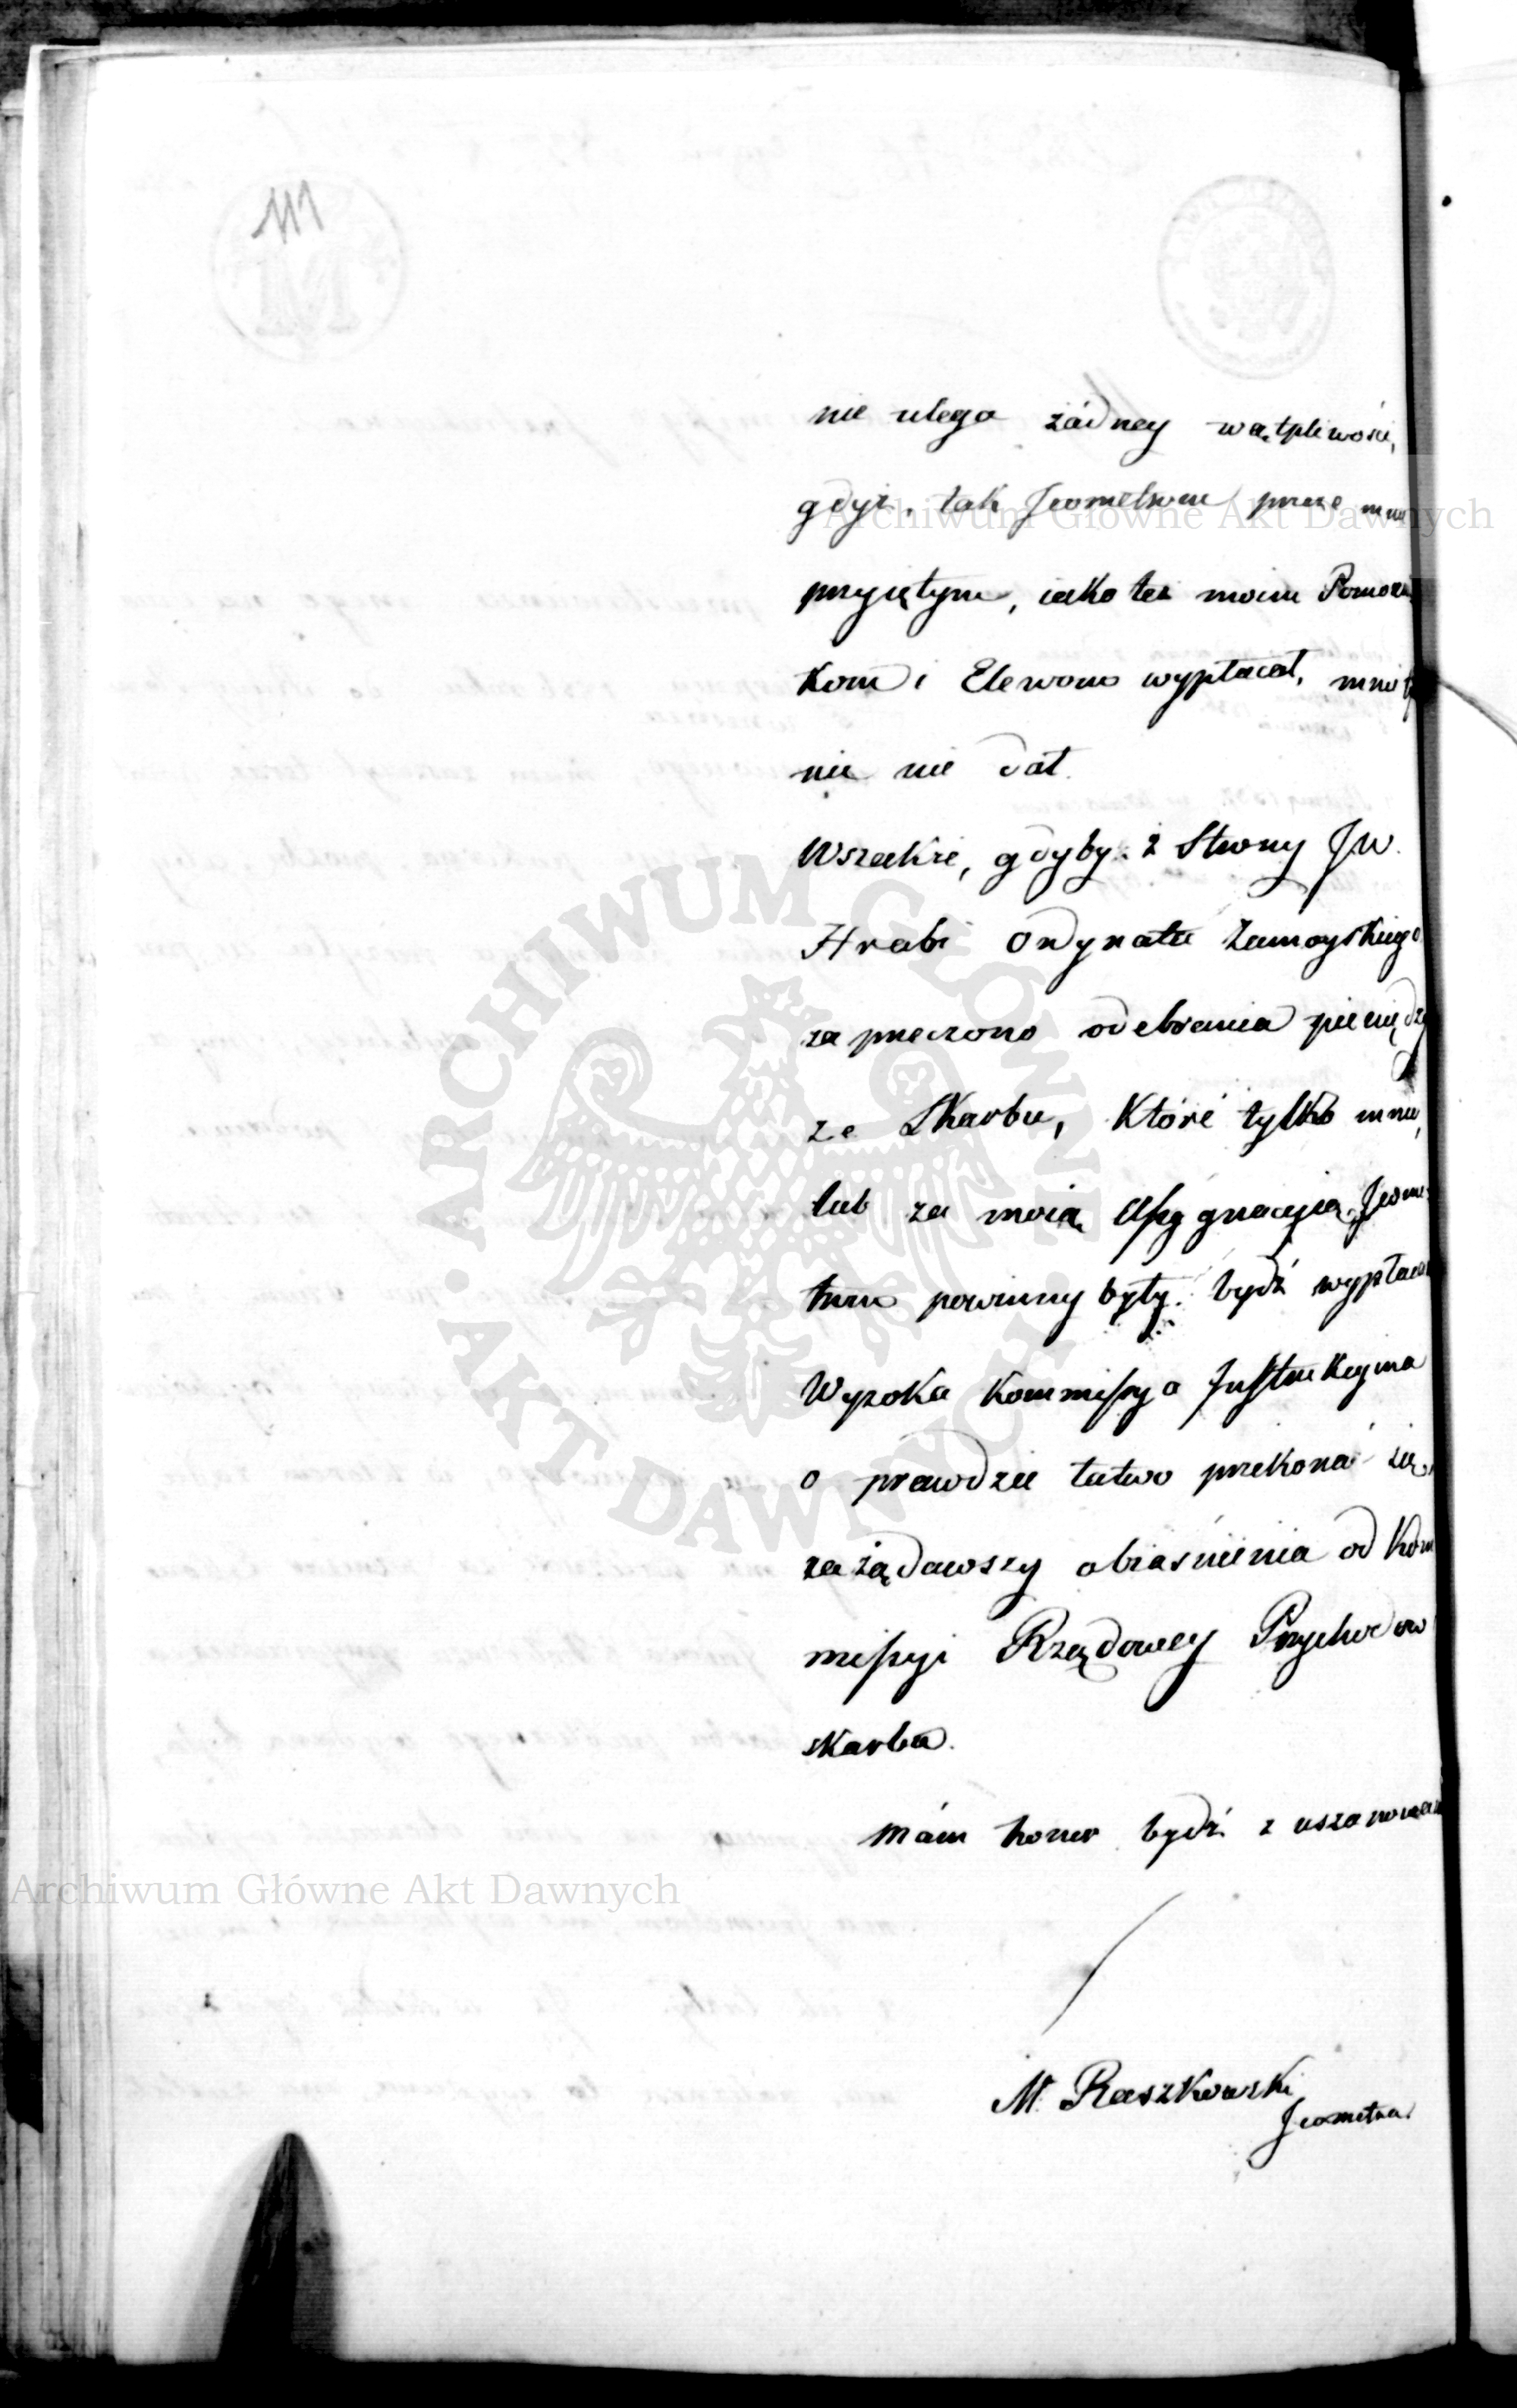 111
nie ulega żadney wątpliwości,
gdyż, tak Jeometrom przezemnie
przyiętym, iako też moim Pomocni
kom i Elewom wypłacał, mnie
nic nie dał.
Wszakże, gdyby z Strony JW.
Hrabi Ordynata Zamoyskiego
zaprzeczono odebrania pieniędzy
ze Skarbu, które tylko mnie,
lub za moią Assygnacyią Jeome
trom powinny były bydź wypłacane
Wysoka Kommissya Instrukcyina
o prawdzie łatwo przekona się,
zażądawszy obiaśnienia od Kom
missyi Rządowey Przychodow
skarbu.
mám honor bydź z uszanowaniem
M. Raszkowski
Jeometra.
Archiwum Główne Akt Dawnych
ARCHIWUM GŁÓWNE · AKT DAWNYCH ·
Archiwum Główne Akt Dawnych